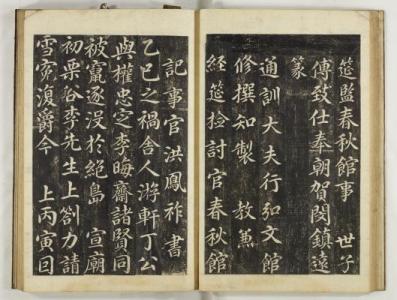 筵監春秋館事 世子
傅致仕奉朝賀閔鎮遠
篆
通訓大夫行弘文館
修撰知製 教兼
經筵撿討官春秋館
記事官洪鳳祚書
乙巳之禍舍人游軒丁公
與權忠定李晦齋諸賢同
被竄逐沒於絕島 宣廟
初栗谷李先生上劄力請
雪寃復爵今 上丙寅回